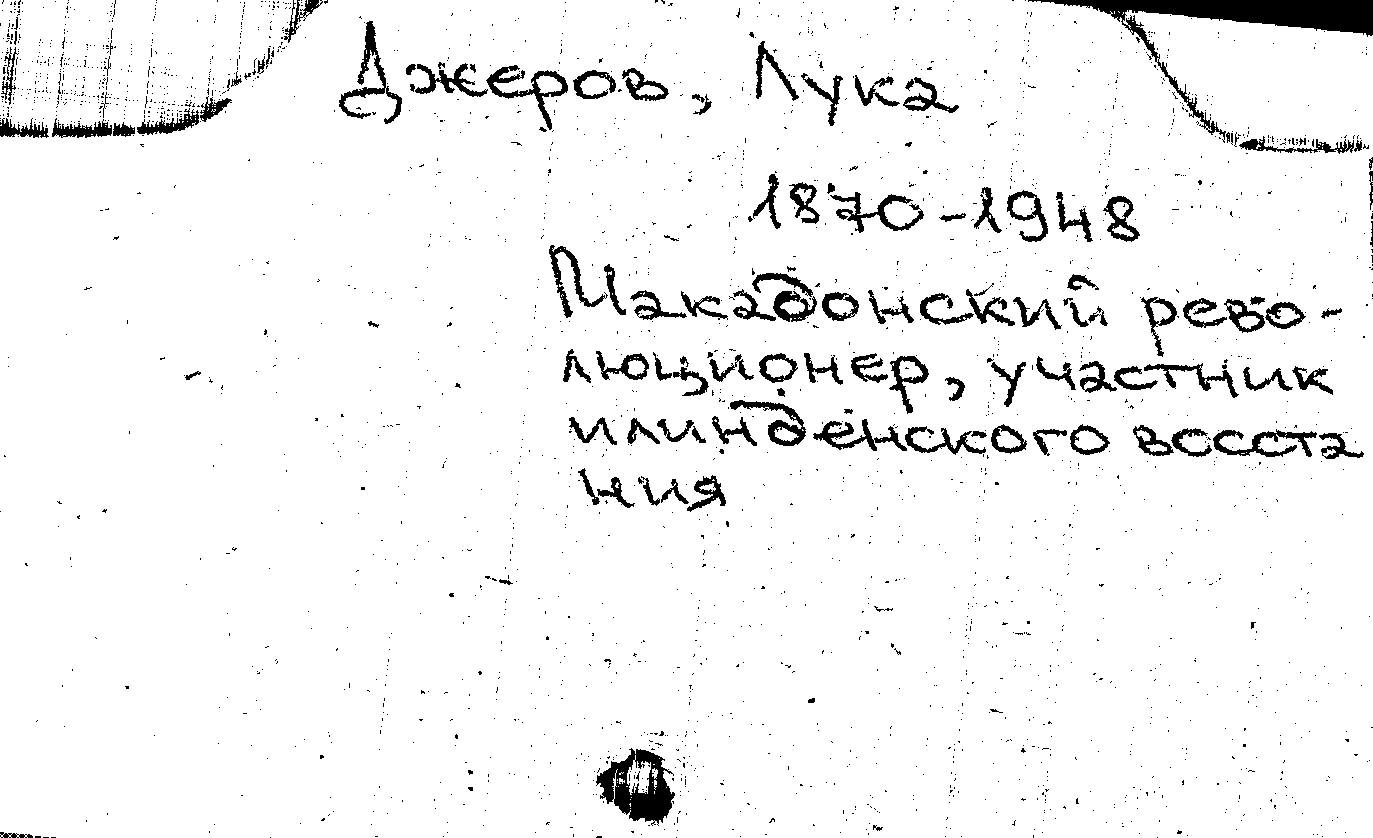 Джеров, Лука
1870-1948
Македонский рево-
люционер, участник
илинденского восста
ния